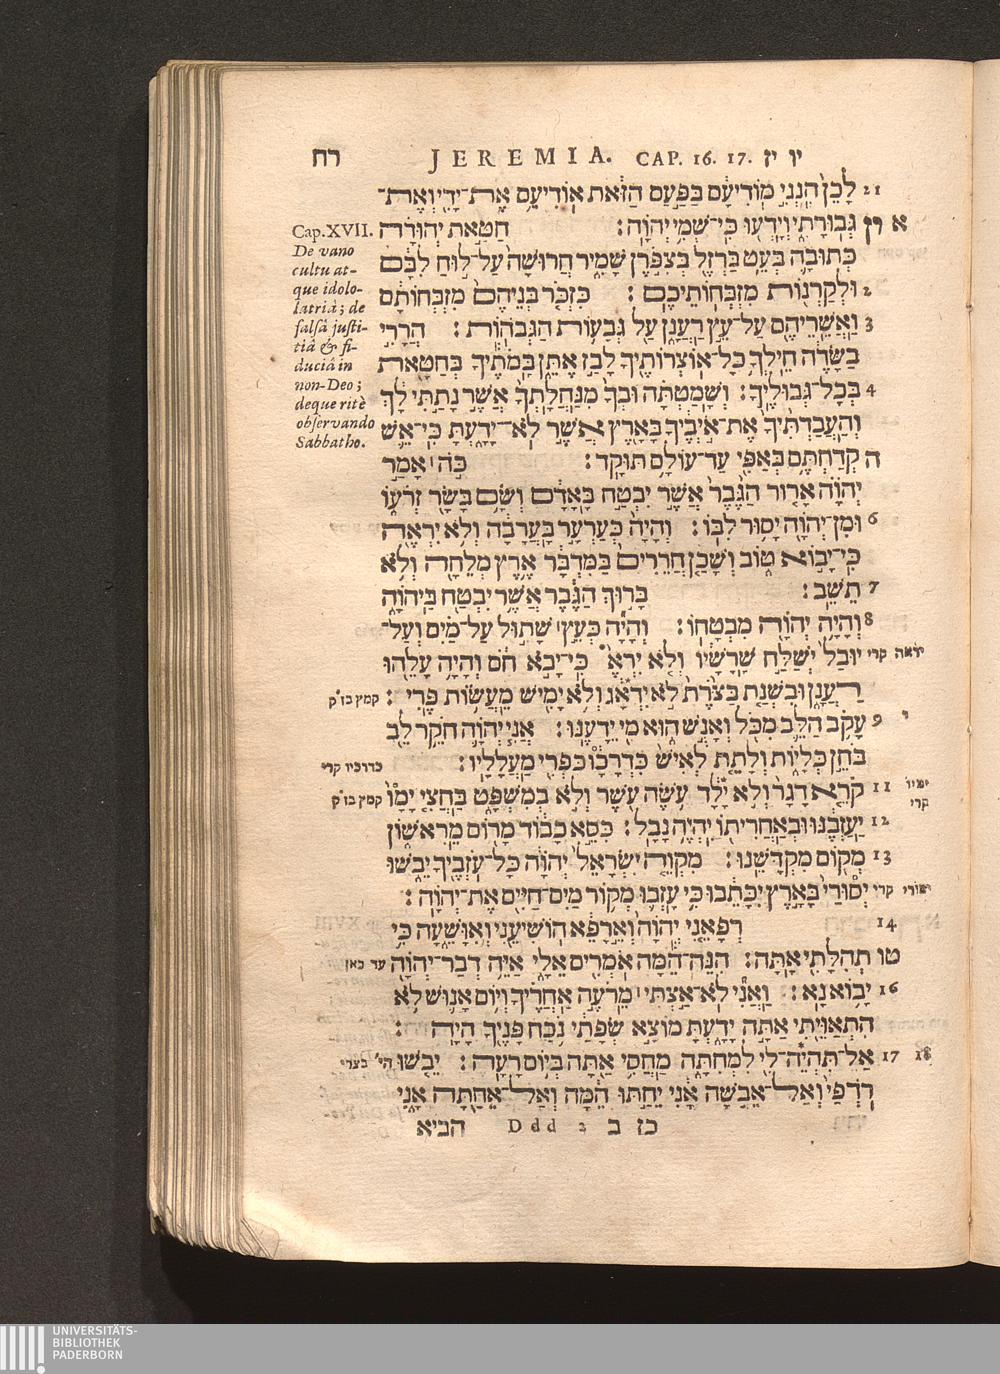 רח JEREMIA. CAP. 16. 17. יו יז
21 לָכֵן הִנְנִי מוֹדִיעָם בַּפַּעַם הַזֹּאת אוֹדִיעֵם אֶת־יָדִי וְאֶת־
א יז גְּבוּרָתִי וְיָדְעוּ כִּי־שְׁמִי יְהוָֹה׃ חַטַּאת יְהוּדָה
כְּתוּבָה בְּעֵט בַּרְזֶל בְּצִפֹּרֶן שָׁמִיר חֲרוּשָׁה עַל־לוּחַ לִבָּם
2 וּלְקַרְנוֹת מִזְבְּחוֹתֵיכֶם׃ כִּזְכֹּר בְּנֵיהֶם מִזְבְּחוֹתָם
3 וַאֲשֵׁרֵיהֶם עַל־עֵץ רַעֲנָן עַל גְּבָעוֹת הַגְּבֹהוֹת׃ הֲרָרִי
בַּשָּׂדֶה חֵילְךָ כָל־אוֹצְרוֹתֶיךָ לָבַז אֶתֵּן בָּמֹתֶיךָ בְּחַטָּאת
4 בְּכָל־גְּבוּלֶיךָ׃ וְשָׁמַטְתָּה וּבְךָ מִנַּחֲלָתְךָ אֲשֶׁר נָתַתִּי לָךְ
וְהַעֲבַדְתִּיךָ אֶת־אֹיְבֶיךָ בָּאָרֶץ אֲשֶׁר לֹא־יָדָעְתָּ כִּי־אֵשׁ
ה קְדַחְתֶּם בְּאַפִּי עַד־עוֹלָם תּוּקָד׃ כֹּה אָמַר
יְהוָֹה אָרוּר הַגֶּבֶר אֲשֶׁר יִבְטַח בָּאָדָם וְשָׂם בָּשָׂר זְרֹעוֹ
6 וּמִן־יְהוָֹה יָסוּר לִבּוֹ׃ וְהָיָה כְּעַרְעָר בָּעֲרָבָה וְלֹא יִרְאֶה
כִּי־יָבוֹא טוֹב וְשָׁכַן חֲרֵרִים בַּמִּדְבָּר אֶרֶץ מְלֵחָה וְלֹא
7 תֵשֵׁב׃ בָּרוּךְ הַגֶּבֶר אֲשֶׁר יִבְטַח בַּיהוָֹה
8 וְהָיָה יְהוָֹה מִבְטַחוֹ׃ וְהָיָה כְּעֵץ שָׁתוּל עַל־מַיִם וְעַל־
יִרְאֶה קרי יוּבַל יְשַׁלַּח שָׁרָשָׁיו וְלֹא יִרְאֶ כִּי־יָבֹא חֹם וְהָיָה עָלֵהוּ
רַעֲנָן וּבִשְׁנַת בַּצֹּרֶת לֹא יִדְאָג וְלֹא יָמִישׁ מֵעֲשׂוֹת פֶּרִי׃ קמץ בז״ק
9 עָקֹב הַלֵּב מִכֹּל וְאָנֻשׁ הוּא מִי יֵדָעֶנּוּ׃ אֲנִי יְהוָֹה חֹקֵר לֵב
בֹּחֵן כְּלָיוֹת וְלָתֵת לְאִישׁ כִּדְרָכָו כִּפְרִי מַעֲלָלָיו׃ כדרכיו קרי
11 קֹרֵא דָגַר וְלֹא יָלָד עֹשֶׂה עֹשֶׁר וְלֹא בְמִשְׁפָּט בַּחֲצִי יָמָו קמץ בז״ק
ימיו קרי
12 יַעַזְבֶנּוּ וּבְאַחֲרִיתוֹ יִהְיֶה נָבָל׃ כִּסֵּא כָבוֹד מָרוֹם מֵרִאשׁוֹן
13 מְקוֹם מִקְדָּשֵׁנוּ׃ מִקְוֵה יִשְׂרָאֵל יְהוָֹה כָּל־עֹזְבֶיךָ יֵבֹשׁוּ
יְסוּרַי בָּאָרֶץ יִכָּתֵבוּ כִּי עָזְבוּ מְקוֹר מַיִם־חַיִּים אֶת־יְהוָֹה׃
14 רְפָאֵנִי יְהוָֹה וְאֵרָפֵא הוֹשִׁיעֵנִי וְאִוָּשֵׁעָה כִּי
טו תְהִלָּתִי אָתָּה׃ הִנֵּה־הֵמָּה אֹמְרִים אֵלָי אַיֵּה דְבַר־יְהוָֹה עד כאן
16 יָבוֹא נָא׃ וַאֲנִי לֹא־אַצְתִּי מֵרֹעֶה אַחֲרֶיךָ וְיוֹם אָנוּשׁ לֹא
הִתְאַוֵּיתִי אַתָּה יָדָעְתָּ מוֹצָא שְׂפָתַי נֹכַח פָּנֶיךָ הָיָה׃
17 18 אַל־תִּהְיֵה־לִי לִמְחִתָּה מַחֲסִי אַתָּה בְּיוֹם רָעָה׃ יֵבֹשׁוּ הי׳ בצרי
רֹדְפַי וְאַל־אֵבֹשָׁה אָנִי יֵחַתּוּ הֵמָּה וְאַל־אֵחַתָּה אָנִי
הביא Ddd 2 כז ב
Cap. XVII.
De vano
cultu at-
que idolo-
latriâ; de
falsâ justi-
tiâ & fi-
duciâ in
non-Deo;
deque ritè
observando
Sabbatho.
UNIVERSITÄTS-
BIBLIOTHEK
PADERBORN